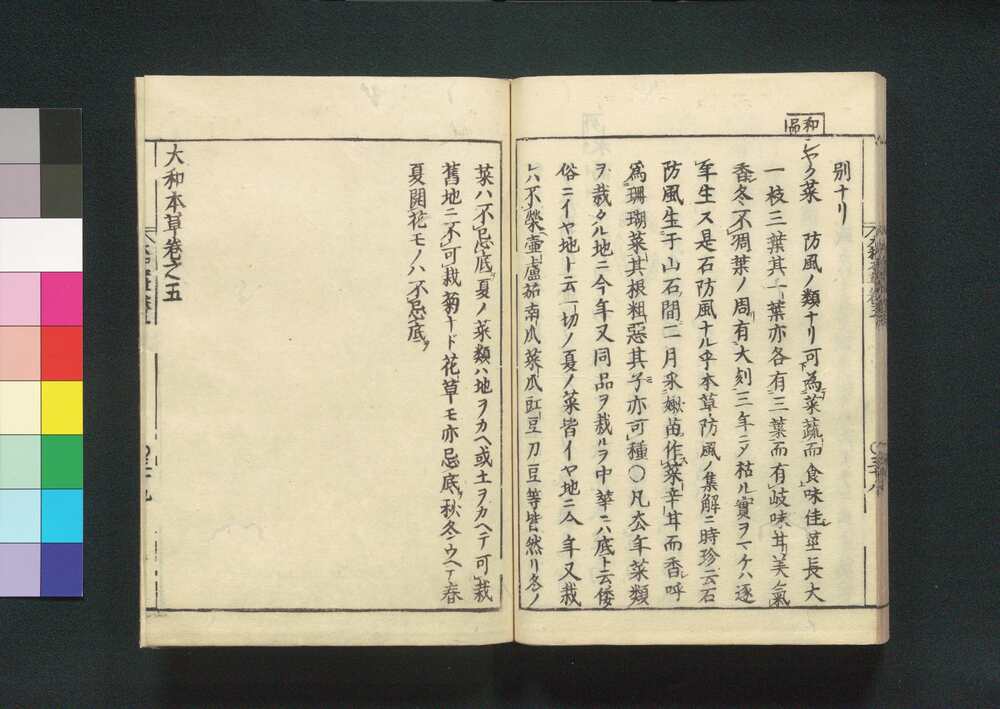 別ナリ
和品
シヤク菜 防風ノ類ナリ可為菜蔬而食味佳莖長大
一枝三葉其一葉亦各有三葉而有岐味甘美氣
香冬不凋葉ノ周有大刻三年ニ〆枯ル實ヲマケハ逐
年生ス是石防風ナル乎本草防風ノ集解ニ時珍云石
防風生于山石間二月采嫩苗作菜辛甘而香呼
為珊瑚菜其根粗惡其子亦可種○凡去年菜類
ヲ栽タル地ニ今年又同品ヲ栽ルヲ中華ニハ底ト云倭
俗ニイヤ地ト云一切ノ夏ノ菜皆イヤ地ニ今年又栽
レハ不榮壷盧茄南瓜菜瓜豇豆刀豆等皆然リ冬ノ
菜ハ不忌底夏ノ菜類ハ地ヲカヘ或土ヲカヘテ可栽
舊地ニ不可栽菊ナド花草モ亦忌底秋冬ウヘテ春
夏開花モノハ不忌底
大和本草巻之五